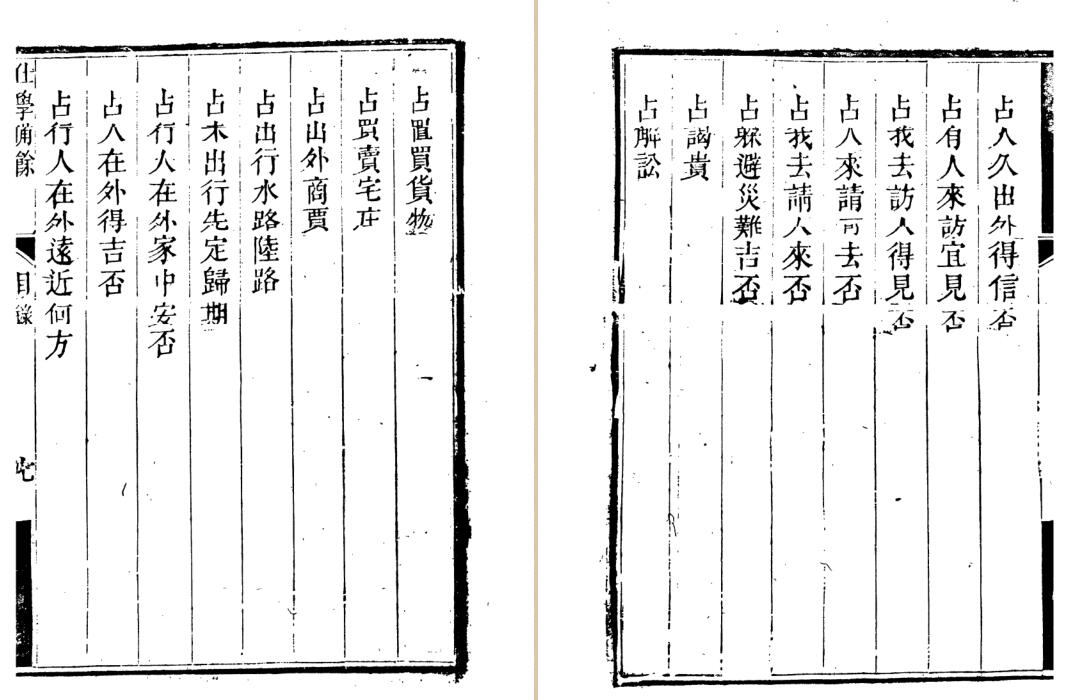 占置買貨物
占買賣宅庄
占出外商賈
占出行水路陸路
占未出行先定歸期
占行人在外家中安否
占人在外得吉否
占行人在外遠近何方
仕學備餘 目錄 七
占人久出外得信否
占有人來訪宜見否
占我去訪人得見否
占人來請可去否
占我去請人來否
占躲避災難吉否
占謁貴
占解訟